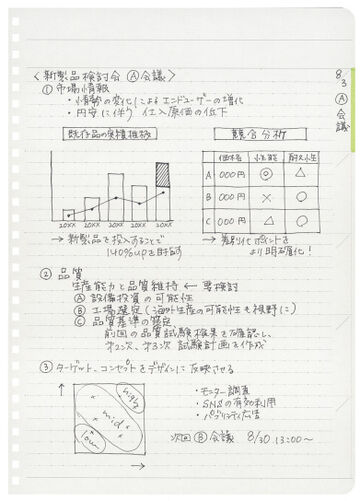 8/3
Ⓐ会議
〈新製品検討会 Ⓐ会議〉
① 市場情報
・情勢の変化によるエンドユーザーの増化
・円安に伴う仕入原価の低下
既存品の実績推移
20XX 20XX 20XX 20XX 20XX
→ 新製品を投入することで
140%upを目指す
競合分析
価格 性能 耐久性
A 000円 ◎ △
B 000円 × ○
C 000円 △ ○
→ 差別化ポイントを
より明確化!
② 品質
生産能力と品質維持 ← 要検討
Ⓐ 設備投資の可能性
Ⓑ 工場選定(海外生産の可能性も視野に)
Ⓒ 品質基準の策定
前回の品質試験結果を確認し、
オ2次、オ3次 試験計画を作成
③ ターゲット、コンセプトをデザインに反映させる
high
mid
low
・モニター調査
・SNSの有効利用
・パブリシティ広告
次回 Ⓑ会議 8/30 13:00〜